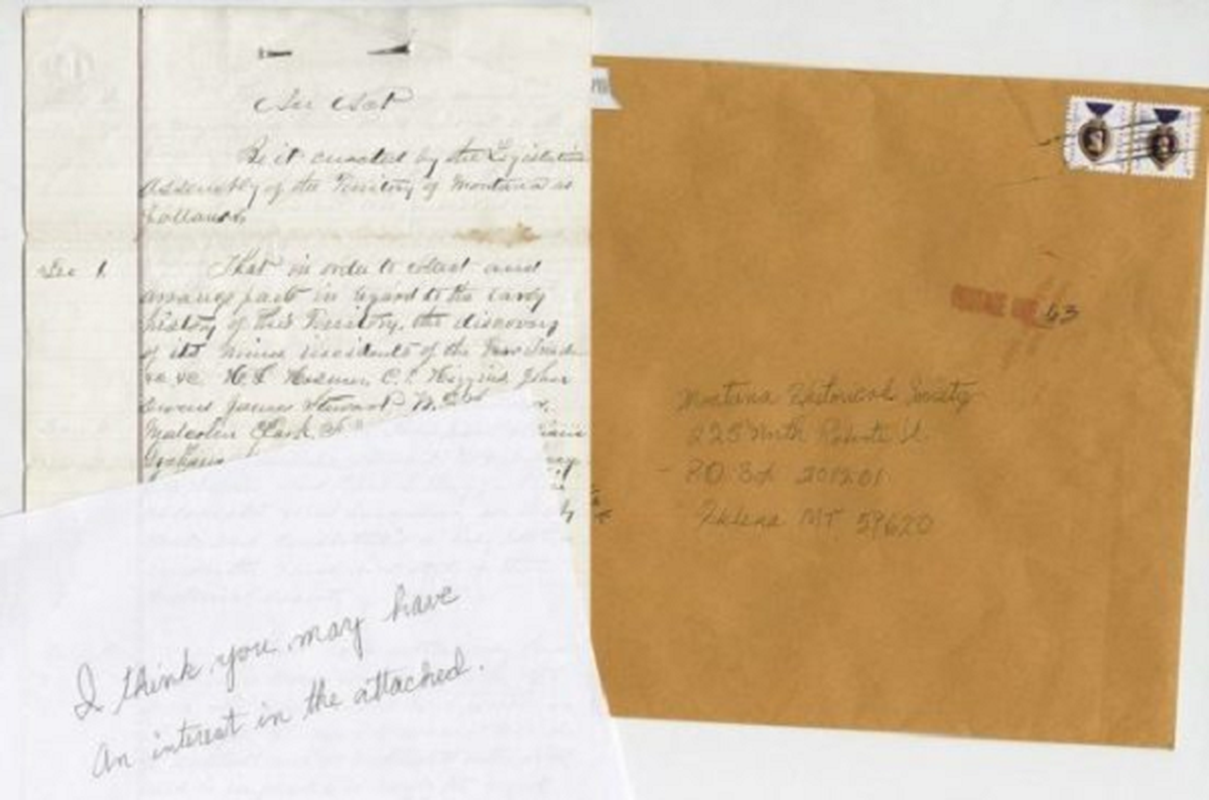 An Act
Be it enacted by the Legislative
Assembly of the Territory of Montana as
follows
Sec 1.
That in order to collect and
arrange facts in regard to the early
history of this Territory, the discovery
of its mines incidents of the
H. L. Hosmer, C. P. Higgins, John
Owens James Stewart
Malcolm Clark,
I think you may have
an interest in the attached.
63
Montana Historical Society
225 North Roberts St.
PO Bx 201201
Helena MT 59620